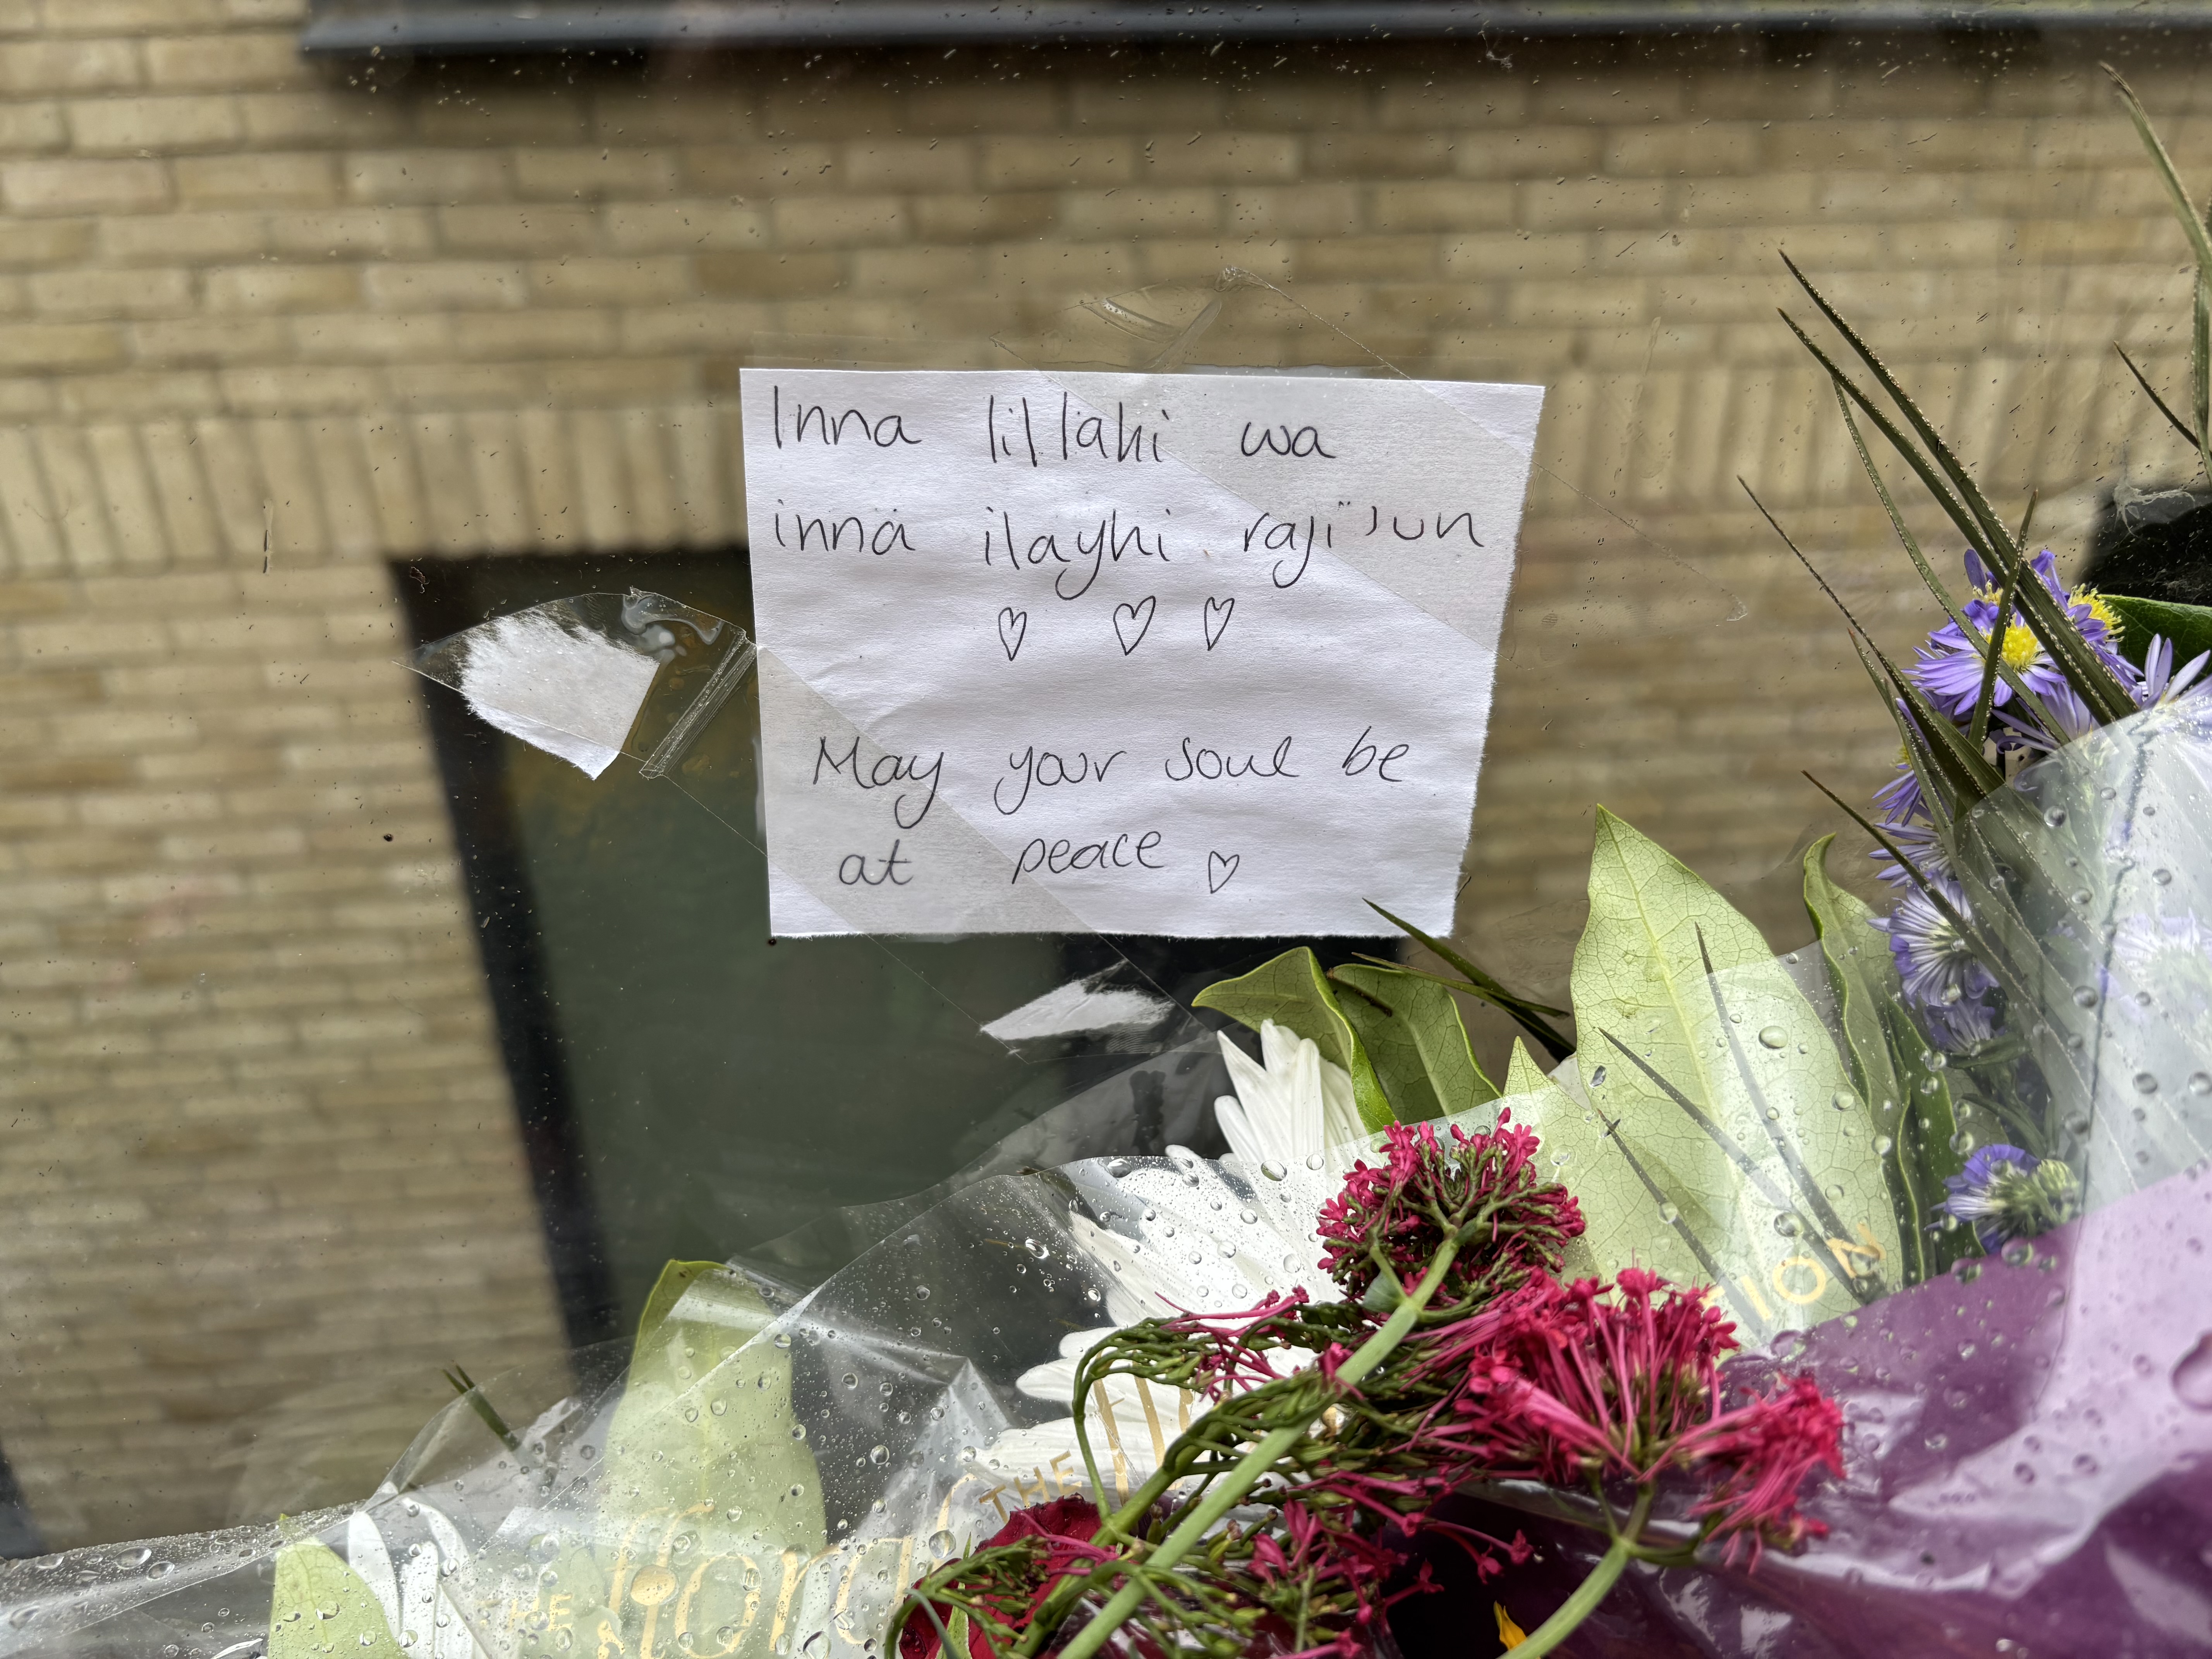 Inna lillahi wa
innä ilayhi raji'un
♡ ♡ ♡
May your soul be
at peace ♡
THE
THE floral